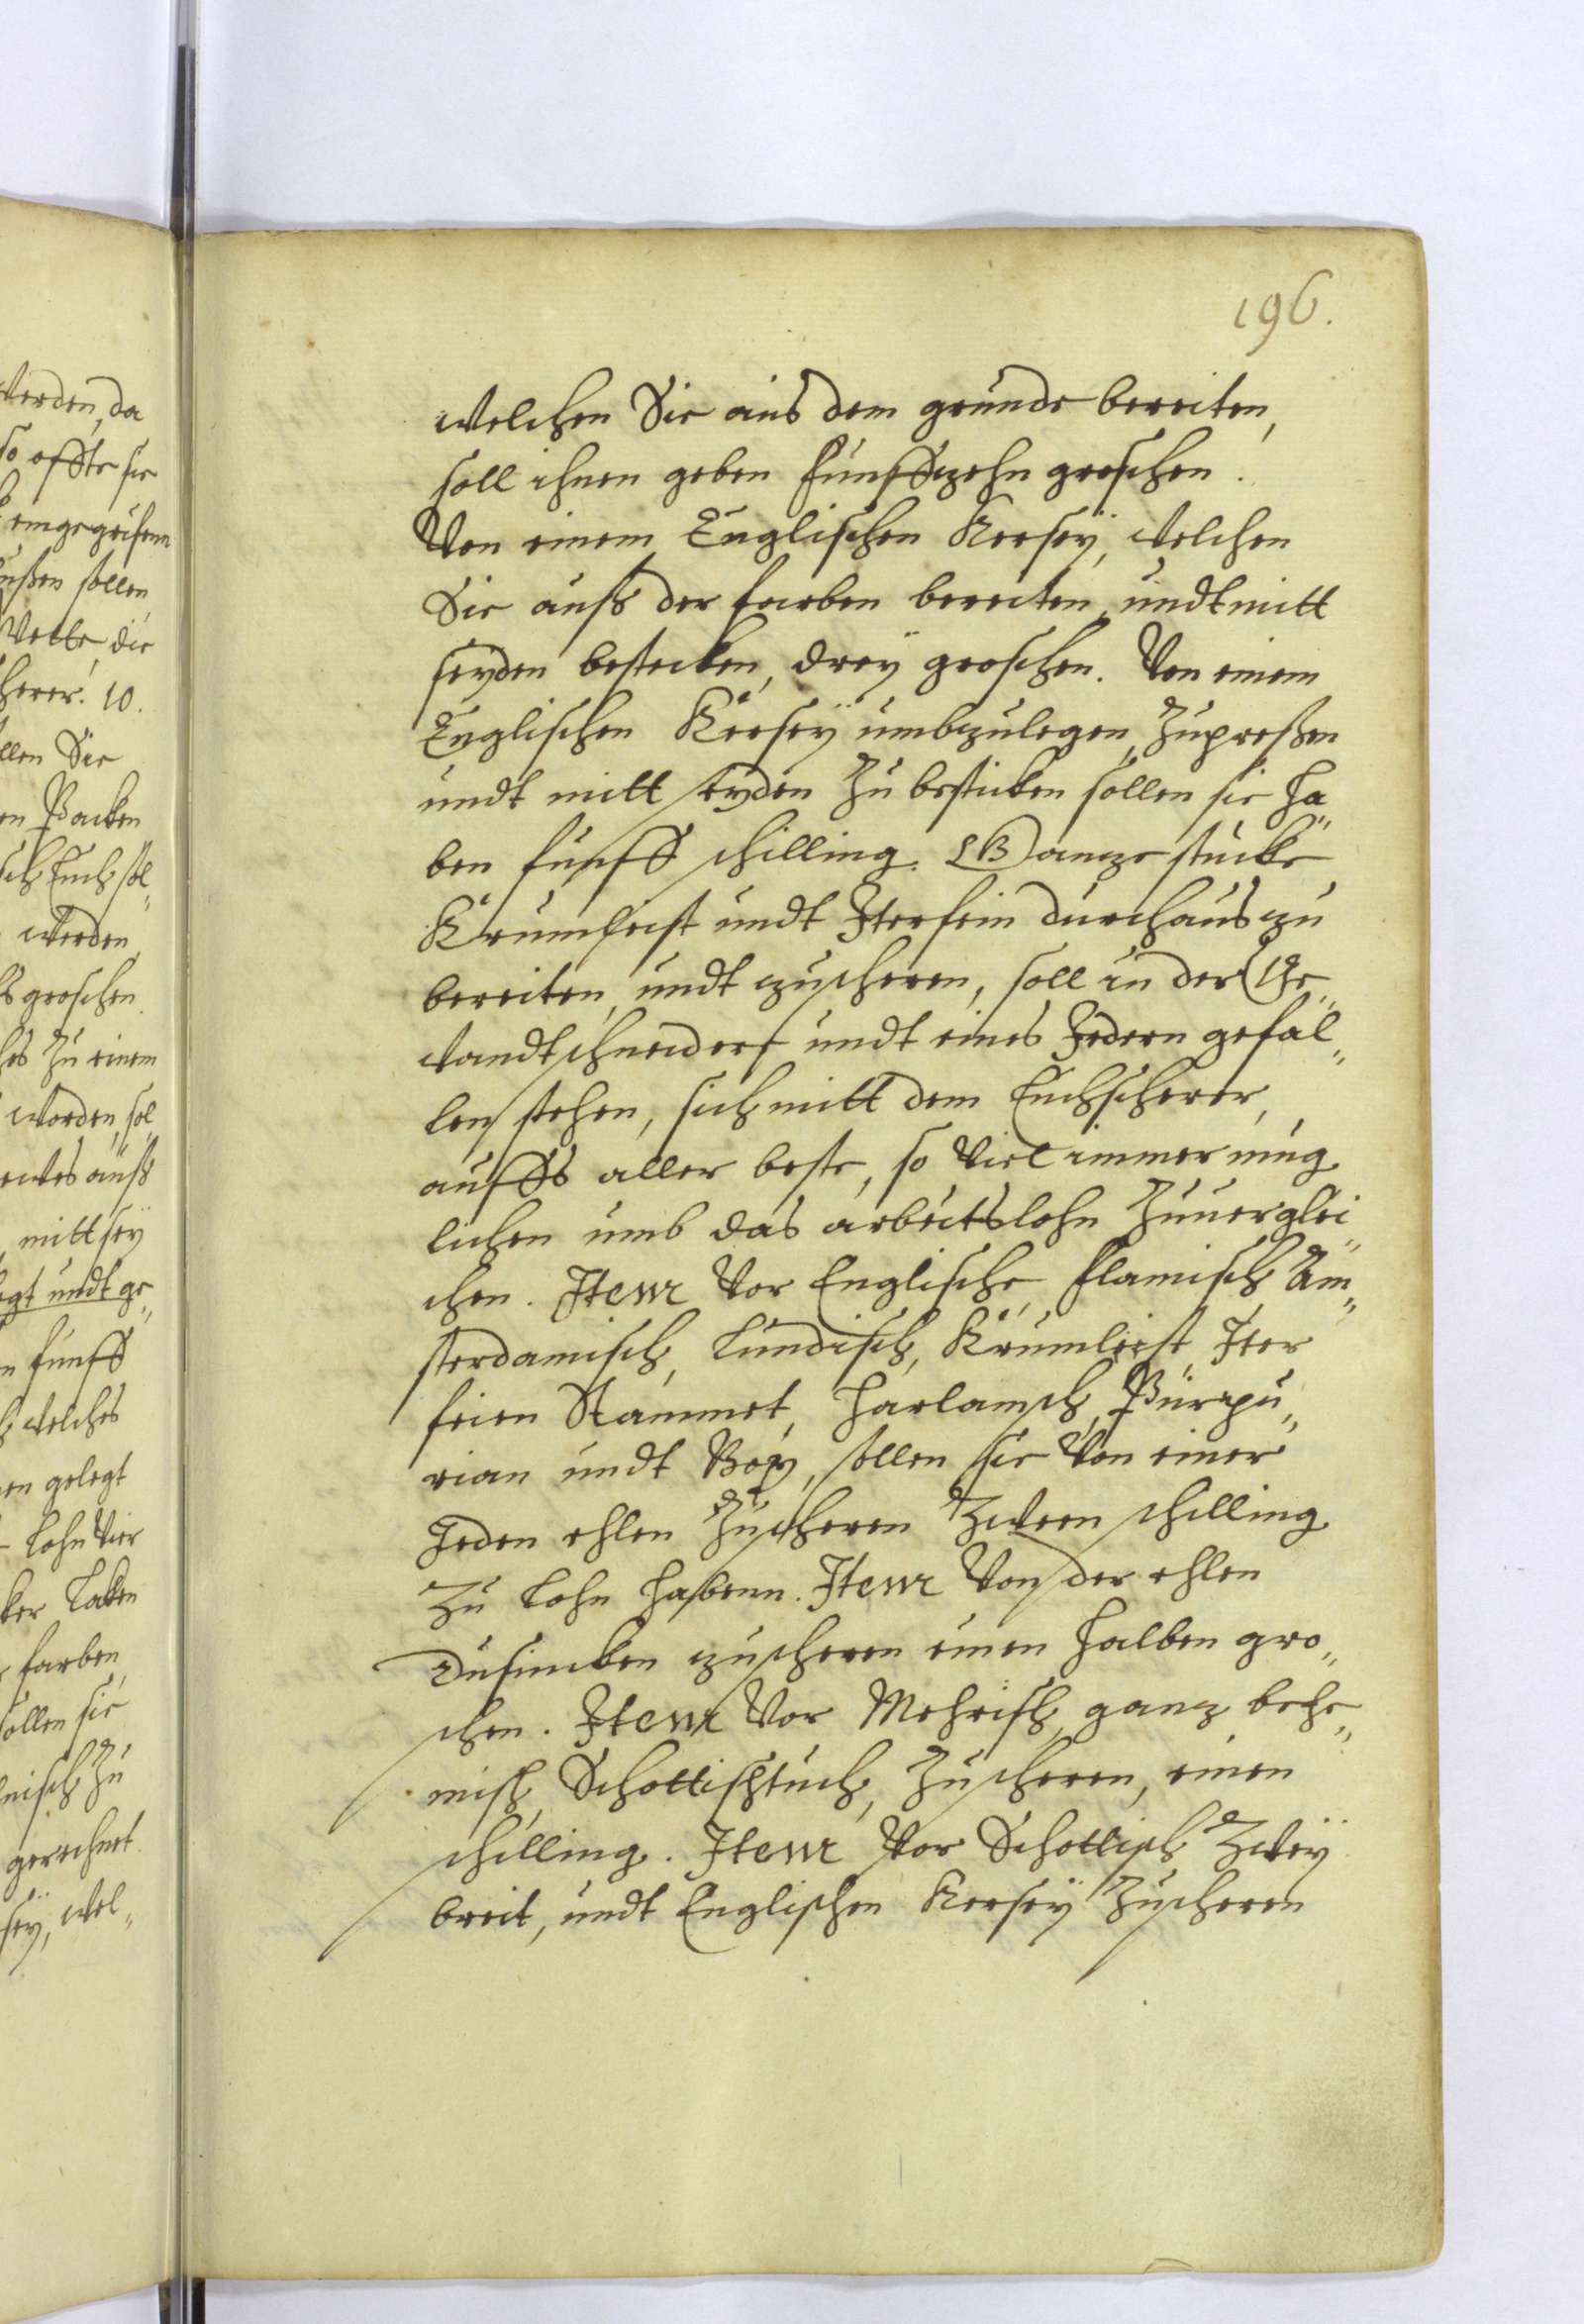 196.
welchen Sie aus dem grunde bereiten,
soll ihnen geben funffzehn groschen.
Von einem Englischen Kersey, welchen
Sie auß der farben bereiten, undt mitt
seyden bestecken, drey groschen. Von einem
Englischen Kersey umbzulegen, zupreßen
undt mitt seyden zu besticken sollen sie ha„
ben funff schilling. Ganze stucke
Krumleist undt Iterfein durchaus zu
bereiten, undt zuscheren, soll in der Ge„
wandtschneider undt eines Jedern gefal„
len stehen, sich mitt dem Tuchscherer,
auffs aller beste, so viel immer müg
lichen umb das arbeitslohn zuuerglei„
chen. Item vor Englische, flamisch Am„
sterdamisch, Lundisch, Krumleist, Iter
feien Stammet, Harlamsch, Pürpu„
rian undt Boy, sollen sie von einer
Jeden ehlen zuscheren zween schilling
zu lohn habenn. Item von der ehlen
Dusincken zuscheren einen halben gro„
schen. Item vor Mehrisch, ganz behe„
misch, Schottischtuch, zuscheren, einen
schilling. Item vor Schottisch zwey
breit, undt Englischen Kersey zuscheren
werden, da
so offte sie
sollen
die
herer. 10.
llen Sie
en Packen
sch Tuch sol„
werden
groschen
hes zu einem
worden, sol
mitt sey
egt undt ge„
n funff
welches
en gelegt
lohn vier
ker Laken
farben
sollen sie
nisch zu
gerechnet
sey, wel„